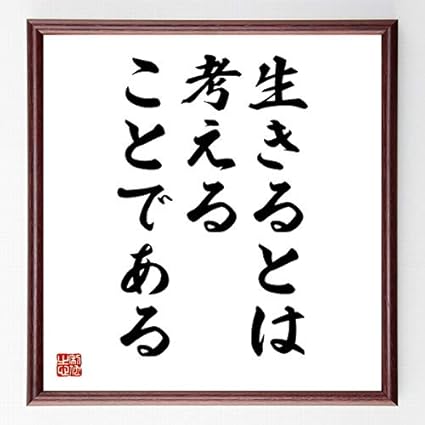 生きるとは
考える
ことである